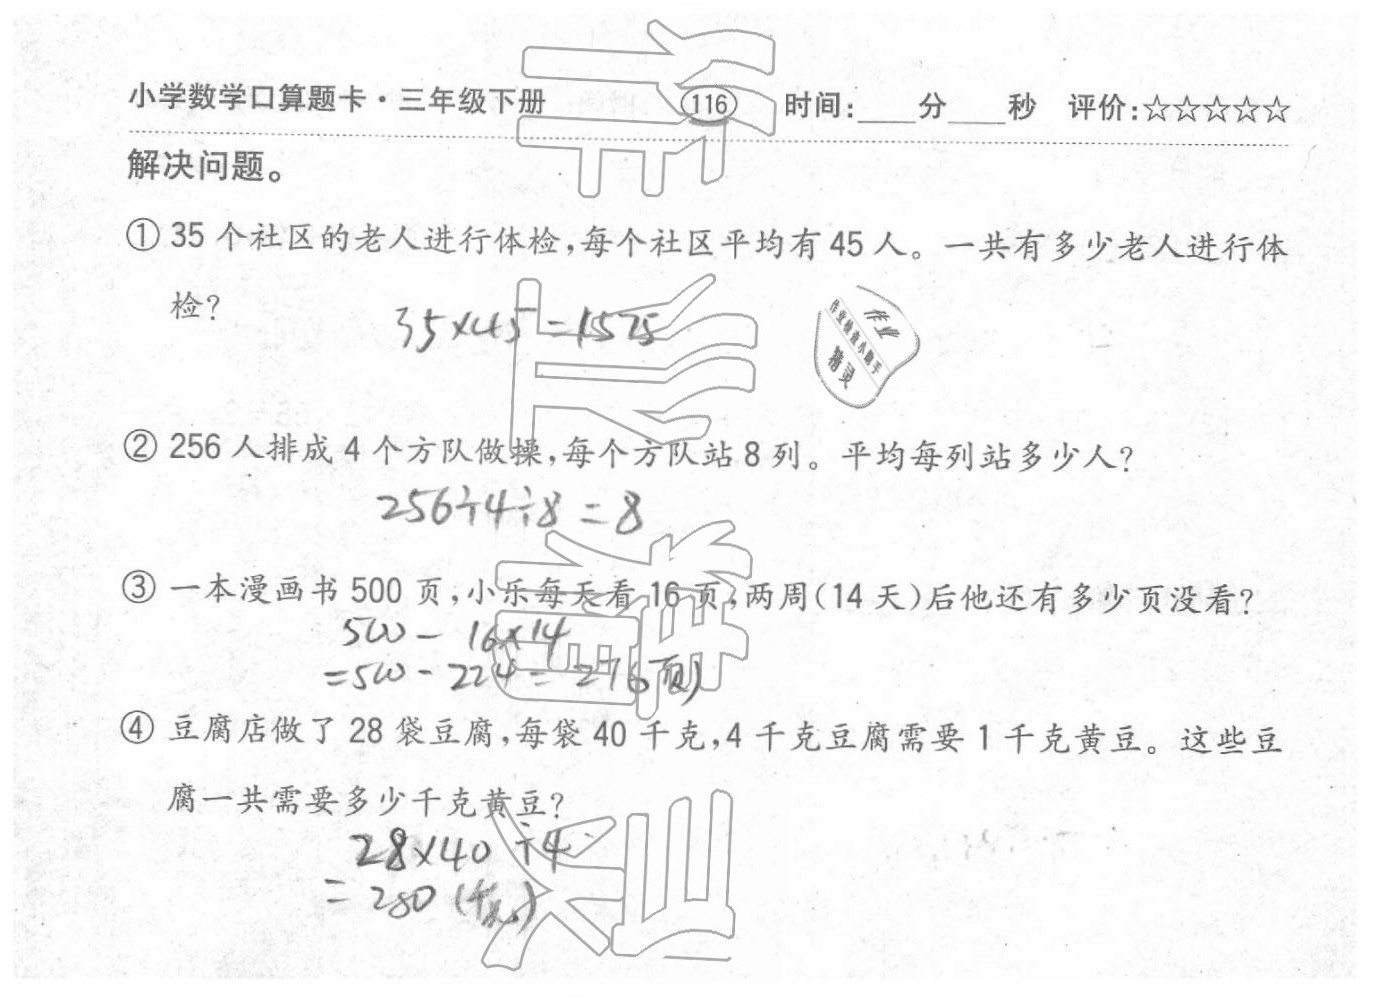 小学数学口算题卡·三年级下册 116 时间:____分____秒 评价:☆☆☆☆☆
解决问题。
① 35 个社区的老人进行体检,每个社区平均有 45 人。一共有多少老人进行体
检?
35×45=1575
作业
作业检查小助手
精灵
② 256 人排成 4 个方队做操,每个方队站 8 列。平均每列站多少人?
256÷4÷8=8
③ 一本漫画书 500 页,小乐每天看 16 页,两周(14 天)后他还有多少页没看?
500-16×14
=500-224=276(页)
④ 豆腐店做了 28 袋豆腐,每袋 40 千克,4 千克豆腐需要 1 千克黄豆。这些豆
腐一共需要多少千克黄豆?
28×40÷4
=280(千克)